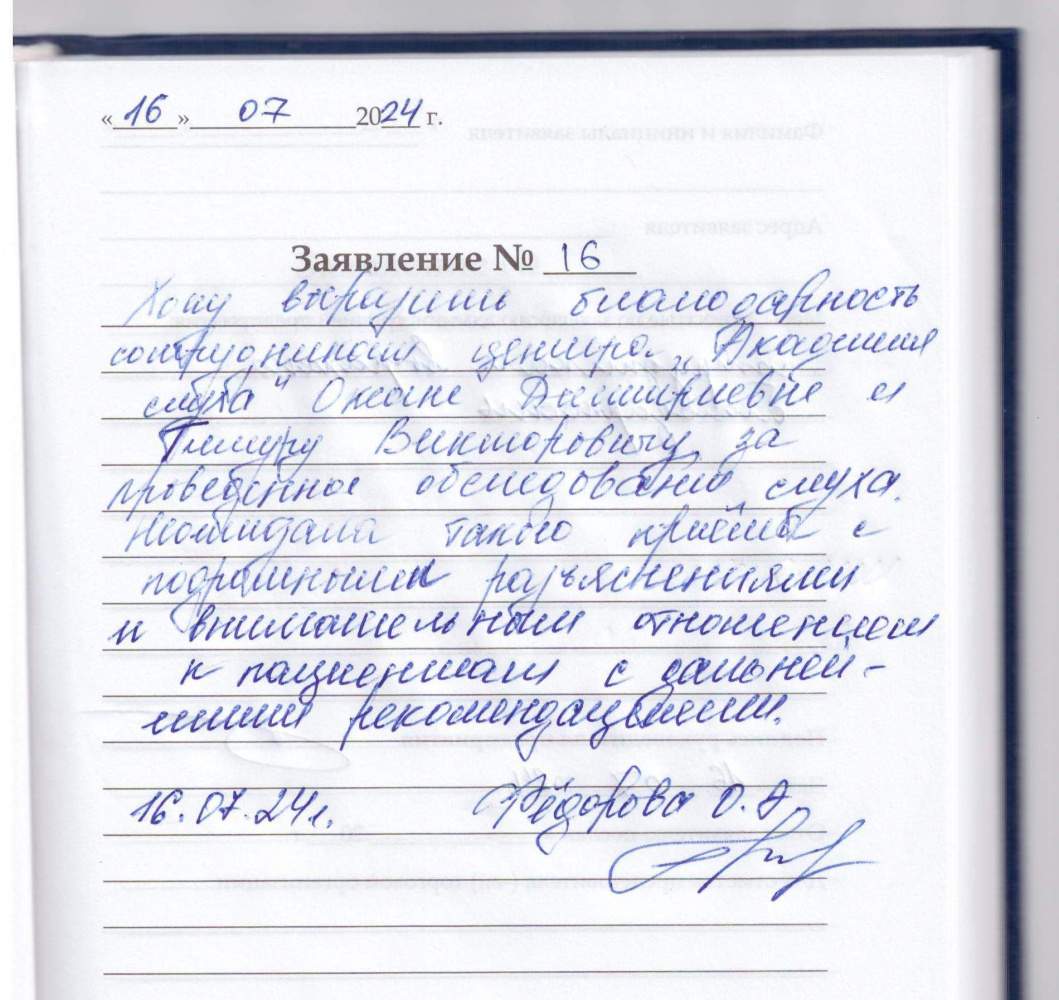 «16» 07 2024 г.
Заявление № 16
Хочу выразить благодарность
сотрудникам центра „Академия
слуха" Оксане Дмитриевне и
Тимуру Викторовичу за
проведённое обследование слуха.
Неожидала такого приёма с
подробными разъяснениями
и внимательным отношением
к пациентам с дальней-
шими рекомендациями.
16.07.24г. Фёдорова О.А.